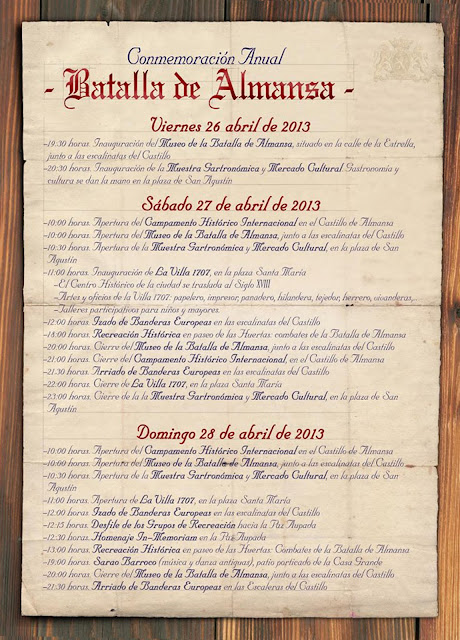 Conmemoración Anual
- Batalla de Almansa -
Viernes 26 abril de 2013
-19:30 horas. Inauguración del Museo de la Batalla de Almansa, situado en la calle de la Estrella,
junto a las escalinatas del Castillo
-20:30 horas. Inauguración de la Muestra Gastronómica y Mercado Cultural. Gastronomía y
cultura se dan la mano en la plaza de San Agustín
Sábado 27 de abril de 2013
-10:00 horas. Apertura del Campamento Histórico Internacional en el Castillo de Almansa
-10:00 horas. Apertura del Museo de la Batalla de Almansa, junto a las escalinatas del Castillo
-10:30 horas. Apertura de la Muestra Gastronómica y Mercado Cultural, en la plaza de San
Agustín
-11:00 horas. Inauguración de La Villa 1707, en la plaza Santa María
-El Centro Histórico de la ciudad se traslada al Siglo XVIII
-Artes y oficios de la Villa 1707: papelero, impresor, panadero, hilandera, tejedor, herrero, vivanderas,..
-Talleres participativos para niños y mayores.
-12:00 horas. Izado de Banderas Europeas en las escalinatas del Castillo
-18:00 horas. Recreación Histórica en paseo de las Huertas: combates de la Batalla de Almansa
-20:00 horas. Cierre del Museo de la Batalla de Almansa, junto a las escalinatas del Castillo
-21:00 horas. Cierre del Campamento Histórico Internacional, en el Castillo de Almansa
-21:30 horas. Arriado de Banderas Europeas en las escalinatas del Castillo
-22:00 horas. Cierre de La Villa 1707, en la plaza Santa María
-23:00 horas. Cierre de la la Muestra Gastronómica y Mercado Cultural, en la plaza de San
Agustín
Domingo 28 de abril de 2013
-10:00 horas. Apertura del Campamento Histórico Internacional en el Castillo de Almansa
-10:00 horas. Apertura del Museo de la Batalla de Almansa, junto a las escalinatas del Castillo
-10:30 horas. Apertura de la Muestra Gastronómica y Mercado Cultural, en la plaza de San
Agustín
-11:00 horas. Apertura de La Villa 1707, en la plaza Santa María
-12:00 horas. Izado de Banderas Europeas en las escalinatas del Castillo
-12:15 horas. Desfile de los Grupos de Recreación hacia la Paz Aupada
-12:30 horas. Homenaje In-Memoriam en la Paz Aupada
-13:00 horas. Recreación Histórica en paseo de las Huertas: Combates de la Batalla de Almansa
-19:00 horas. Sarao Barroco (música y danza antiguas), patio porticado de la Casa Grande
-20:00 horas. Cierre del Museo de la Batalla de Almansa, junto a las escalinatas del Castillo
-21:30 horas. Arriado de Banderas Europeas en las Escaleras del Castillo